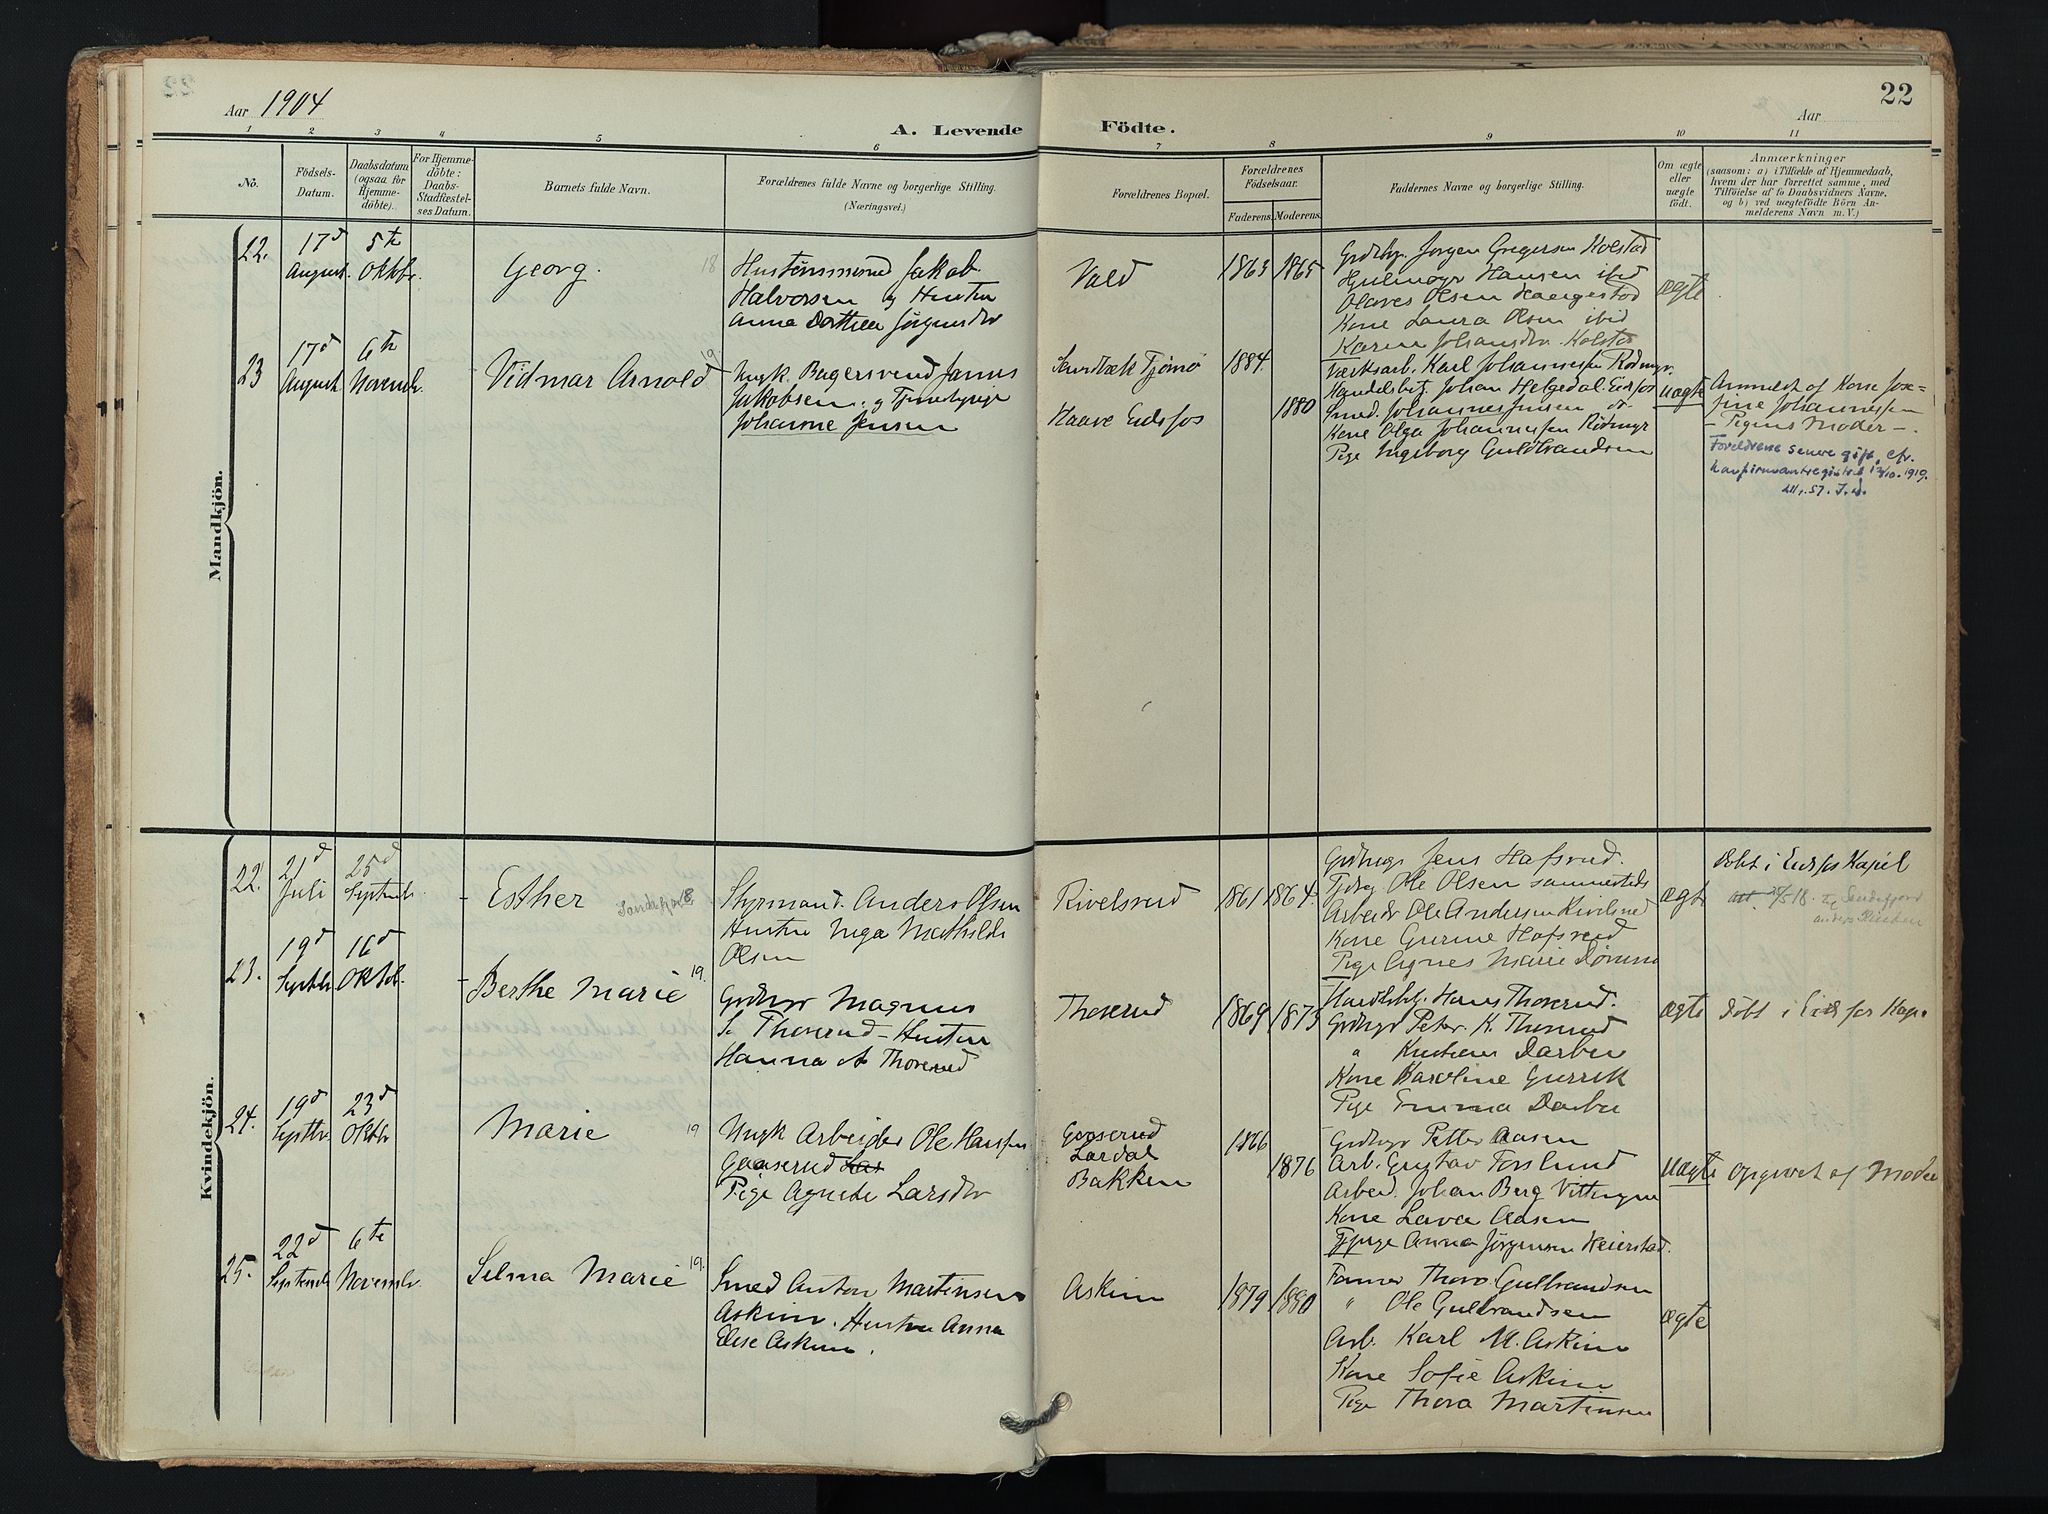 Aar 1904
A. Levende
Födte.
22
Aar
1 2 3 4 5 6 7 8 9 10 11
No.
Födsels-
Datum.
Daabsdatum
(ogsaa for
Hjemme-
döbte).
For Hjemme-
döbte:
Daabs-
Stadfæstel-
ses Datum.
Barnets fulde Navn.
Forældrenes fulde Navne og borgerlige Stilling.
(Næringsvei.)
Forældrenes Bopæl.
Forældrenes
Födselsaar.
Faderens. Moderens.
Faddernes Navne og borgerlige Stilling.
Om ægte
eller
uægte
födt.
Anmærkninger
(saasom: a) i Tilfælde af Hjemmedaab,
hvem der har forrettet samme, med
Tilföielse af to Daabsvidners Navne,
og b) ved uægtefödte Börn An-
melderens Navn m. V.)
Mandkjön.
22.
17d
August.
5te
Oktbr.
Georg.
18
Hustømmermand Jakob
Halvorsen og Hustru
Anna Dorthea Jørgensdtr
Vold
1863
1865
Grdbgr. Jørgen Gregersen Kolstad
Hjulmager Hansen ibid
Olaves Olsen Haugestad
Kone Laura Olsen ibid
Karen Johansdtr Kolstad
ægte
23
17d
August.
6te
Novembr.
Vidmar Arnold
19
Ungk. Bagersvend Janus
Jakobsen. og Tjenestepige
Johanne Jensen
Sandbæk Tjømø
Haave Eidsfos
1884.
1880
Værksarb. Karl Johannessen Rødmyr.
Handelsbet. Johan Helgedal. Eidsfos
Smed. Johannes Jensen do
Kone Olga Johannessen Rødmyr
Pige Ingeborg Guldbrandsen
uægte
Anmeldt af Kone Jose-
fine Johannessen
- Pigens Moder -.
Forældrene senere gift, cfr.
konfirmantregistret 12/10. 1919.
Kvindekjön.
22.
21d
Juli
25d
Septembr.
Esther
Sandefjord
18
Styrmand. Anders Olsen
Hustru Inga Mathilde
Olsen
Rivelsrud
1861
1864.
Grdbrugr Jens Hafsrud.
Ole Olsen sammesteds
Arbeider Ole Andersen Rivelsrud
Kone Gurine Hafsrud
Pige Agnes Marie
ægte
Døbt i Eidsfos Kapel
att. 28/5 18. Sandefjord
23.
19d
Septbr
16d
Oktob.
Berthe Marie
19.
Grdbrgr Magnus
S. Thorerud - Hustru
Hanna A Thorerud
Thorerud
1869
1875
Handelsb. Hans Thorerud.
Grdbrgr Peter K. Thorerud
" Kristian Darbu
Kone Karoline Gurrik
Pige Emma Darbu
ægte
Døbt i Eidsfos Kap.
24.
19d
Septbr.
23d
Oktbr
Marie
19
Ungk Arbeider Ole Hansen
Gaaserud
Pige Agnete Larsdtr
Gaaserud
Lardal
Bakken
1866
1876
Grdbrgr Petter Aasen
Arb. Gustav Forslund
Arbeid. Johan Berg Vittingen
Kone Lava Aasen
Tjpige Anna Jørgensen Heierstad.
uægte
Opgivet af Moder
25.
22d
Septembr
6te
Novembr.
Selma Marie
19.
Smed Anton Martinsen
Askim. Hustru Anna
Else Askim.
Askim
1879
1880
Former Thorv. Gulbrandsen
" Ole Gulbrandsen
Arb. Karl M. Askim
Kone Sofie Askim
Pige Thora Martinsen
ægte